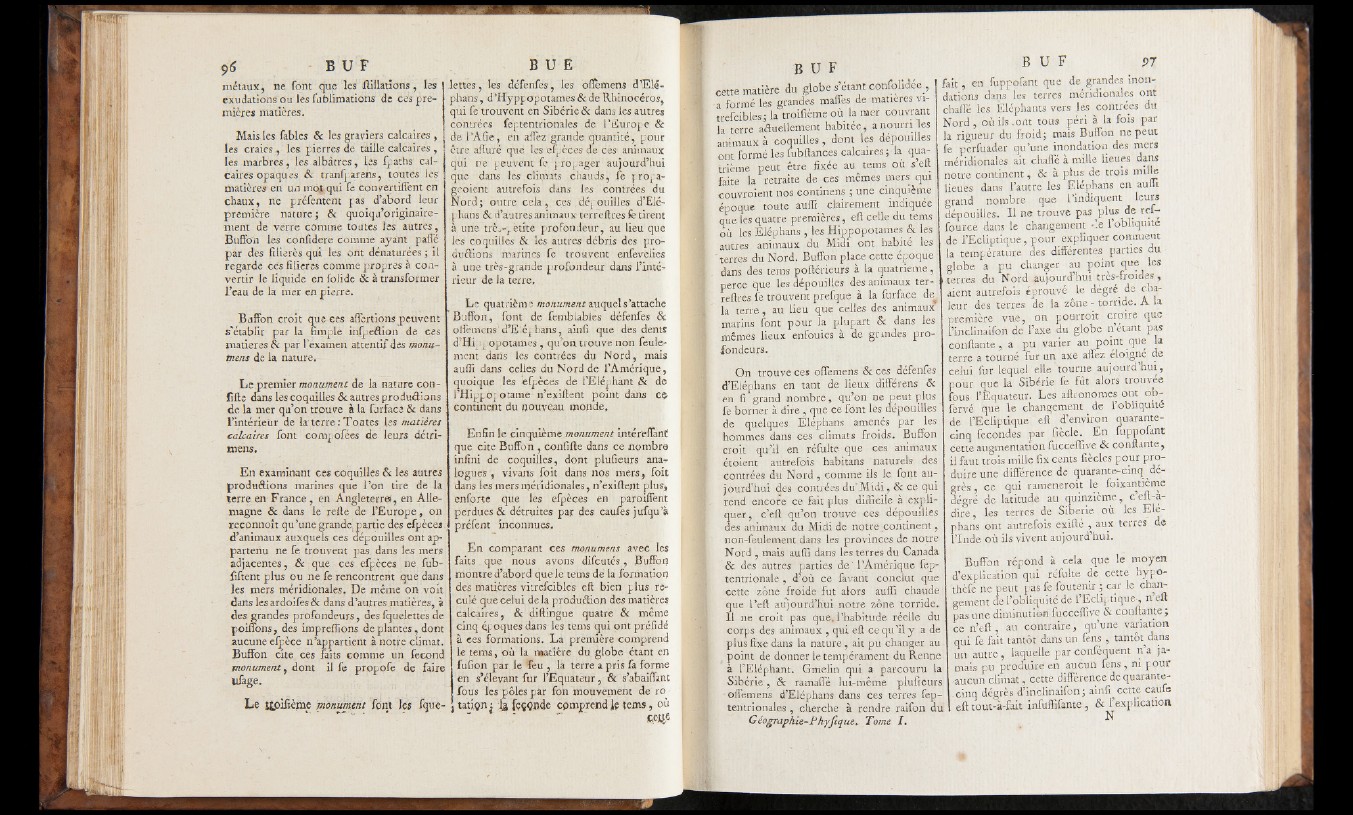 96 BUF BUF
métaux, ne font que les ſtillations, les
exudations ou les ſublimations de ces pre-
mières matières.
Mais les ſables & les graviers calcaires,
les craies, les pierres de taille calcaires,
les marbres, les albâtres, les ſpaths cal-
caires opaques & tranſparens, toutes les
matières en un mot qui ſe convertiſſent en
chaux, ne préſentent pas d'abord leur
première nature; & quoiqu'originaire-
ment de verre comme toutes les autres,
Buffon les conſidere comme ayant paſſé
par des filières qui les ont dénaturées; il
regarde ces filieres comme propres à con-
vertir le liquide en ſolide & à transformer
l'eau de la mer en pierre.
Buffon croit que ces aſſertions peuvent
s'établir par la ſimple inſpection de ces
matieres & par l'examen attentif des monu-
mens de la nature.
Le premier monument de la nature con-
ſiſte dans les coquilles & autres productions
de la mer qu'on trouve à la ſurface & dans
l'intérieur de la terre : Toutes les matières
calcaires ſont compoſées de leurs détri-
mens.
En examinant ces coquilles & les autres
productions marines que l'on tire de la
terre en France, en Angleterre, en Alle-
magne & dans le reſte de l'Europe, on
reconnoît qu'une grande partie des eſpèces
d'animaux auxquels ces dépouilles ont ap-
partenu ne ſe trouvent pas dans les mers
adjacentes, & que ces eſpèces ne ſub-
ſiſtent plus ou ne ſe rencontrent que dans
les mers méridionales. De même on voit
dans les ardoiſes & dans d'autres matières, à
des grandes profondeurs, des ſquelettes de
poiſſons, des impreſſions de plantes, dont
aucune eſpèce n'appartient à notre climat.
Buffon cite ces faits comme un ſecond
monument, dont il ſe propoſe de faire
uſage.
Le troiſième monument ſont les ſque-
lettes, les défenſes, les oſſemens d'Elé-
phans, d'Hyppopotames & de Rhinocéros,
qui ſe trouvent en Sibérie & dans les autres
contrées ſeptentrionales de l'Europe &
de l'Aſie, en aſſez grande quantité, pour
être aſſuré que les eſpèces de ces animaux
qui ne peuvent ſe propager aujourd'hui
que dans les climats chauds, ſe propa-
geoient autrefois dans les contrées du
Nord; outre cela, ces dépouilles d'Elé-
phans & d'autres animaux terreſtres ſe tirent
à une très-petite profondeur, au lieu que
les coquilles & les autres débris des pro-
ductions marines ſe trouvent enſevelies
à une très-grande profondeur dans l'inté-
rieur de la terre.
Le quatrième monument auquel s'attache
Buffon, ſont de ſemblables défenſes &
oſſemens d'Eléphans, ainſi que des dents
d'Hippopotames, qu'on trouve non ſeule-
ment dans les contrées du Nord, mais
auſſi dans celles du Nord de l'Amérique,
quoique les eſpèces de l'Eléphant & de
l'Hippopotame n'exiſtent point dans ce
continent du nouveau monde.
Enfin le cinquième monument intéreſſant
que cite Buffon, conſiſte dans ce nombre
infini de coquilles, dont pluſieurs ana-
logues, vivans ſoit dans nos mers, ſoit
dans les mers méridionales, n'exiſtent plus,
enſorte que les eſpèces en paroiſſent
perdues & détruites par des cauſes juſqu'à
préſent inconnues.
En comparant ces monumens avec les
faits que nous avons diſcutés, Buffon
montre d'abord que le tems de la formation
des matières vitreſcibles eſt bien plus re-
culé que celui de la production des matières
calcaires, & diſtingue quatre & même
cinq époques dans les tems qui ont préſidé
à ces formations. La première comprend
le tems, où la matière du globe étant en
fuſion par le feu, la terre a pris ſa forme
en s'élevant ſur l'Equateur, & s'abaiſſant
ſous les pôles par ſon mouvement de ro-
tation; la ſeconde comprend le tems, où
cette
BUF BUF 97
cette matière du globe s'étant conſolidée,
a formé les grandes maſſes de matières vi-
treſcibles; la troiſième où la mer couvrant
la terre actuellement habitée, a nourri les
animaux à coquilles, dont les dépouilles
ont formé les ſubſtances calcaires; la qua-
trième peut être fixée au tems où s'eſt
faite la retraite de ces mêmes mers qui
couvroient nos continens; une cinquième
époque toute auſſi clairement indiquée
que les quatre premières, eſt celle du tems
où les Eléphans, les Hippopotames & les
autres animaux du Midi ont habité les
terres du Nord. Buffon place cette époque
dans des tems poſtérieurs à la quatrieme,
perce que les dépouilles des animaux ter-
reſtres ſe trouvent preſque à la ſurface de
la terre, au lieu que celles des animaux
marins ſont pour la plupart & dans les
mêmes lieux enfouies à de grandes pro-
fondeurs.
On trouve ces oſſemens & ces défenſes
d'Eléphans en tant de lieux différens &
en ſi grand nombre, qu'on ne peut plus
ſe borner à dire, que ce ſont les dépouilles
de quelques Eléphans amenés par les
hommes dans ces climats froids. Buffon
croit qu'il en réſulte que ces animaux
étoient autrefois habitans naturels des
contrées du Nord, comme ils le ſont au-
jourd'hui des contrées du Midi, & ce qui
rend encore ce fait plus difficile à expli-
quer, c'eſt qu'on trouve ces dépouilles
des animaux du Midi de notre continent,
non-ſeulement dans les provinces de notre
Nord, mais auſſi dans les terres du Canada
& des autres parties de l'Amérique ſep-
tentrionale, d'où ce ſavant conclut que
cette zône froide fut alors auſſi chaude
que l'eſt aujourd'hui notre zône torride.
Il ne croit pas que l'habitude réelle du
corps des animaux, qui eſt ce qu'il y a de
plus fixe dans la nature, ait pu changer au
point de donner le tempérament du Renne
à l'Eléphant. Gmelin qui a parcouru la
Sibérie, & ramaſſé lui-même pluſieurs
oſſemens d'Eléphans dans ces terres ſep-
tentrionales, cherche à rendre raiſon du
Géographie-Phyſique. Tome I.
fait, en ſuppoſant que de grandes inon-
dations dans les terres méridionales ont
chaſſé les Eléphants vers les contrées du
Nord, où ils ont tous péri à la fois par
la rigueur du froid; mais Buffon ne peut
ſe perſuader qu'une inondation des mers
méridionales ait chaſſé à mille lieues dans
notre continent, & à plus de trois mille
lieues dans l'autre les Eléphans en auſſi
grand nombre que l'indiquent leurs
dépouilles. Il ne trouve pas plus de reſ-
ſource dans le changement de l'obliquité
de l'Ecliptique, pour expliquer comment
la température des différentes parties du
globe a pu changer au point que les
terres du Nord aujourd'hui très-froides,
aient autrefois éprouvé le dégré de cha-
leur des terres de la zône-torride. A la
première vue, on pourroit croire que
l'inclinaiſon de l'axe du globe n'étant pas
conſtante, a pu varier au point que la
terre a tourné ſur un axe aſſez éloigné de
celui ſur lequel elle tourne aujourd'hui,
pour que la Sibérie ſe fût alors trouvée
ſous l'Equateur. Les aſtronomes ont ob-
ſervé que le changement de l'obliquité
de l'Ecliptique eſt d'environ quarante-
cinq ſecondes par ſiècle. En ſuppoſant
cette augmentation ſucceſſive & conſtante,
il faut trois mille ſix cents ſiècles pour pro-
duire une différence de quarante-cinq dé-
grés, ce qui rameneroit le ſoixantième
dégré de latitude au quinzième, c'eſt-à-
dire, les terres de Siberie où les Elé-
phans ont autrefois exiſté, aux terres de
l'Inde où ils vivent aujourd'hui.
Buffon répond à cela que le moyen
d'explication qui réſulte de cette hypo-
thèſe ne peut pas ſe ſoutenir; car le chan-
gement de l'obliquité de l'Ecliptique, n'eſt
pas une diminution ſucceſſive & conſtante;
ce n'eſt, au contraire, qu'une variation
qui ſe fait tantôt dans un ſens, tantôt dans
un autre, laquelle par conſéquent n'a ja-
mais pu produire en aucun ſens, ni pour
aucun climat, cette différence de quarante-
cinq dégrés d'inclinaiſon; ainſi cette cauſe
eſt tout-à-fait inſuffiſante, & l'explication
N